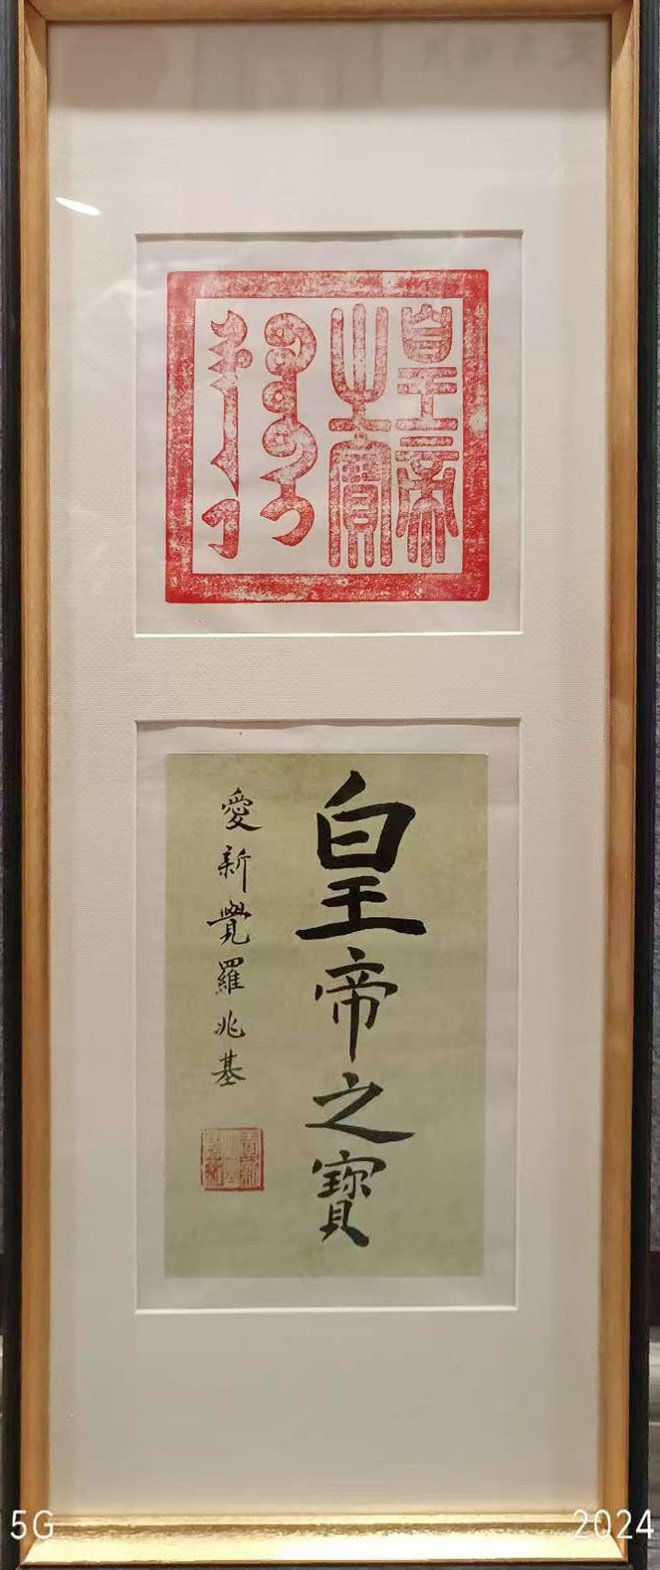 皇帝
之寶
ᡥᠠᠨ ᡳ
ᠪᠣᠣᠪᠠᡳ
皇帝之寶
愛新覺羅兆基
5G
2024